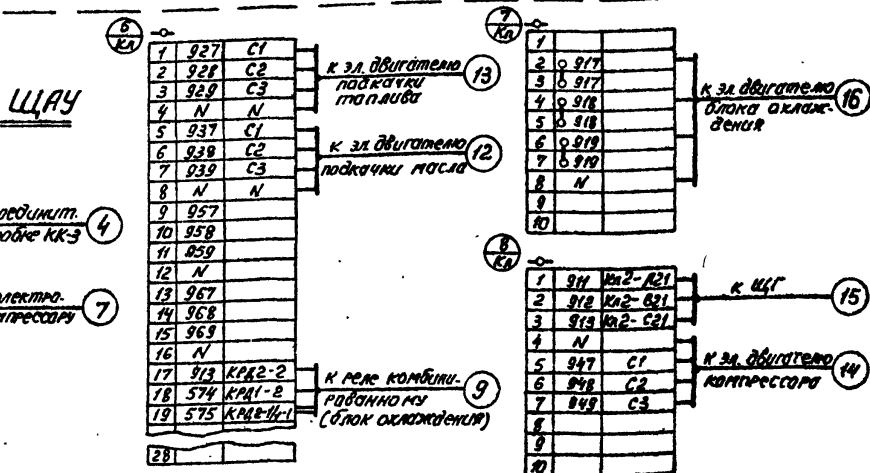 ЩАУ
единит.
робке КК-3
4
лектро-
мпрессору
7
6
Кл
1 927 С1
2 928 С2
3 929 С3
4 N N
5 937 С1
6 938 С2
7 939 С3
8 N N
9 957
10 958
11 959
12 N
13 967
14 968
15 969
16 N
17 913 КРД2-2
18 574 КРД1-2
19 575
28
к эл. двигателю
подкачки
топлива
13
к эл. двигателю
подкачки масла
12
к реле комбини-
рованному
(блок охлаждения)
9
7
Кл
1
2 917
3 917
4 918
5 918
6 919
7 919
8 N
9
10
к эл. двигателю
блока охлаж-
дения
16
8
Кл
1 911 Кл2-А21
2 912 Кл2-В21
3 913 Кл2-С21
4 N
5 947 С1
6 948 С2
7 949 С3
8
9
10
к ЩГ
15
к эл. двигателю
компрессора
14